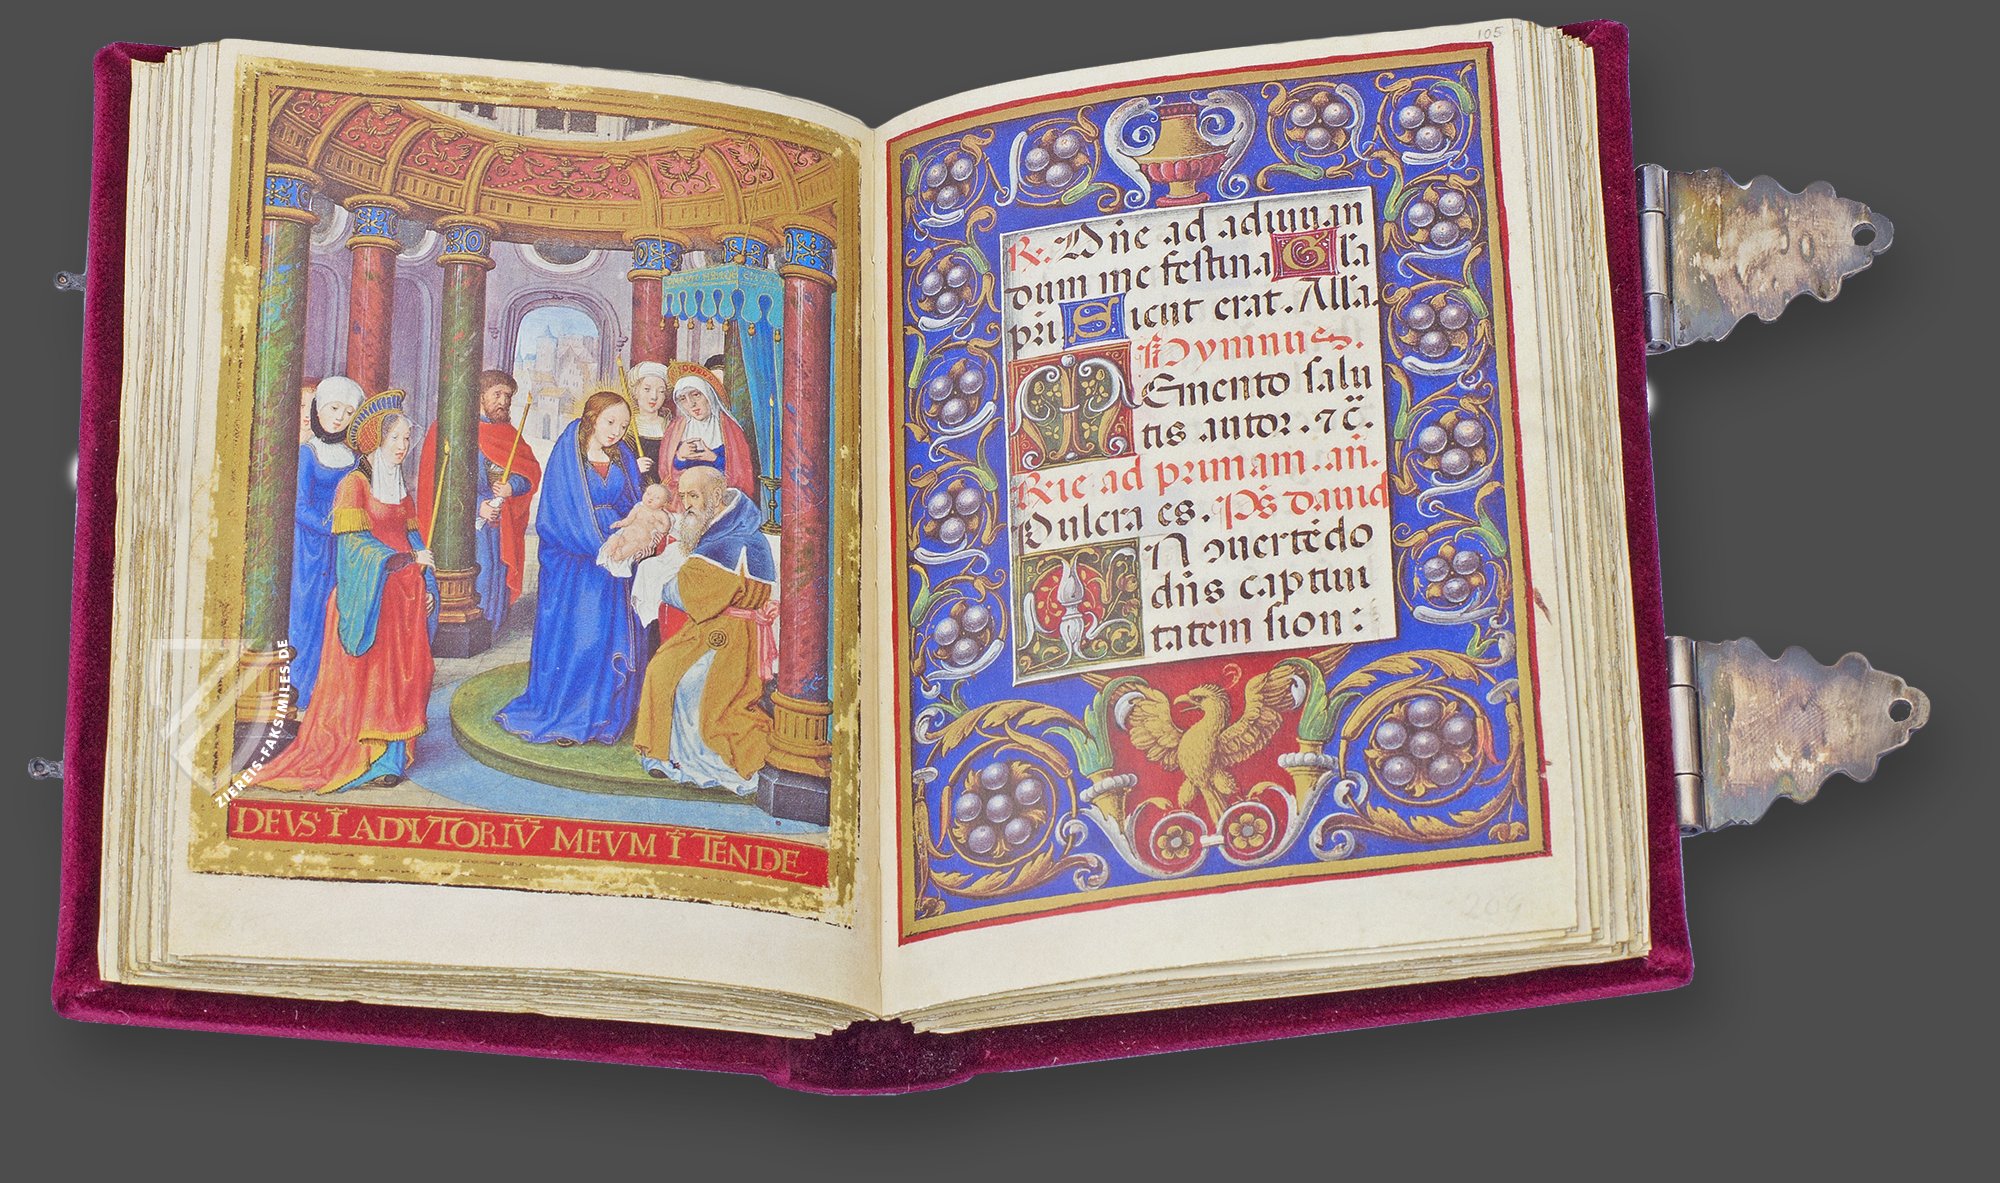 DEVS ĪADVTORIV̄ MEVM Ī TENDE
ZIEREIS-FAKSIMILES.DE
105
R. Dñe ad adiuuan
dum me festina G la
pri S icut erat. Alla.
Hymnus.
M Emento salu
tis autor. ⁊ c̄.
Rie ad primam. añ.
Pulcra es. Ps dauid
I N ɔuertēdo
dñs captiui
tatem sion:
209